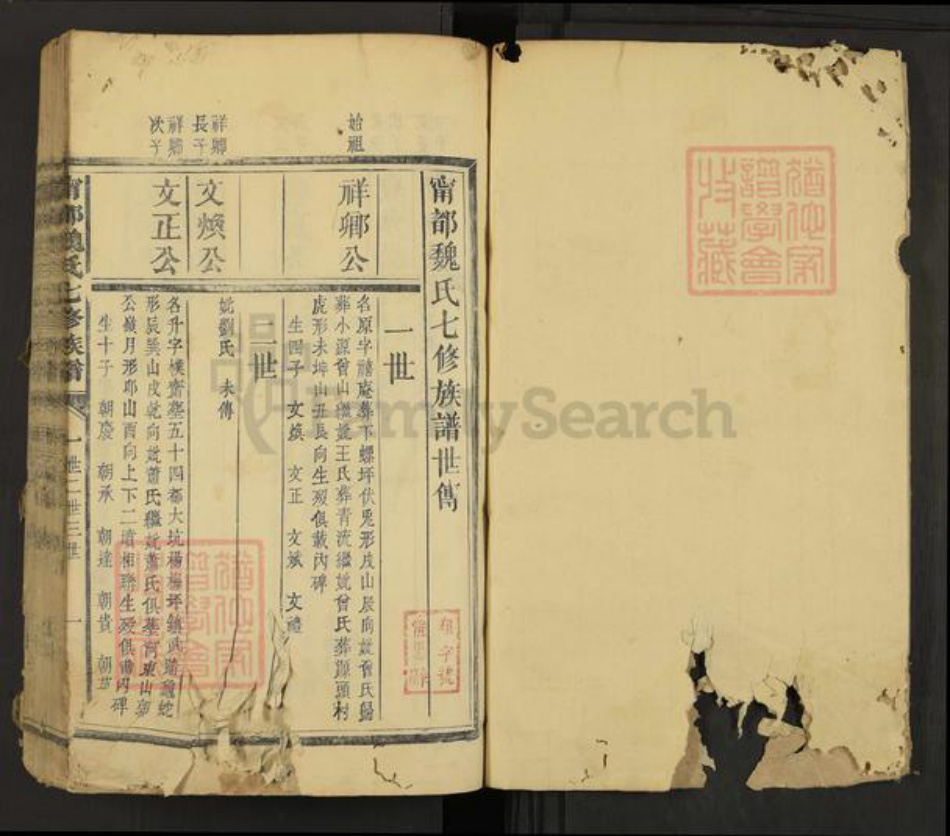 甯都魏氏七修族譜世傳
一世
始祖
祥卿公
名原字禧庵葬下螺坪伏兎形戌山辰向妣曾氏歸
葬小源曾山繼妣王氏葬青流繼妣曾氏葬源頭村
虎形未坤山丑艮向生歿俱載內碑
生四子 文煥 文正 文斌 文禮
二世
祥卿長子
文煥公
妣劉氏 未傳
祥卿次子
文正公
名升字樸齋葬五十四都大坑楊梅坪鎮武蛇
形辰巽山戌乾向妣蕭氏繼妣蕭氏俱葬河東山
公嶺月形卯山酉向上下二墳相聯生歿俱載內碑
生十子 朝慶 朝承 朝達 朝貴 朝
甯都魏氏七修族譜 一世二世三世 一
FamilySearch